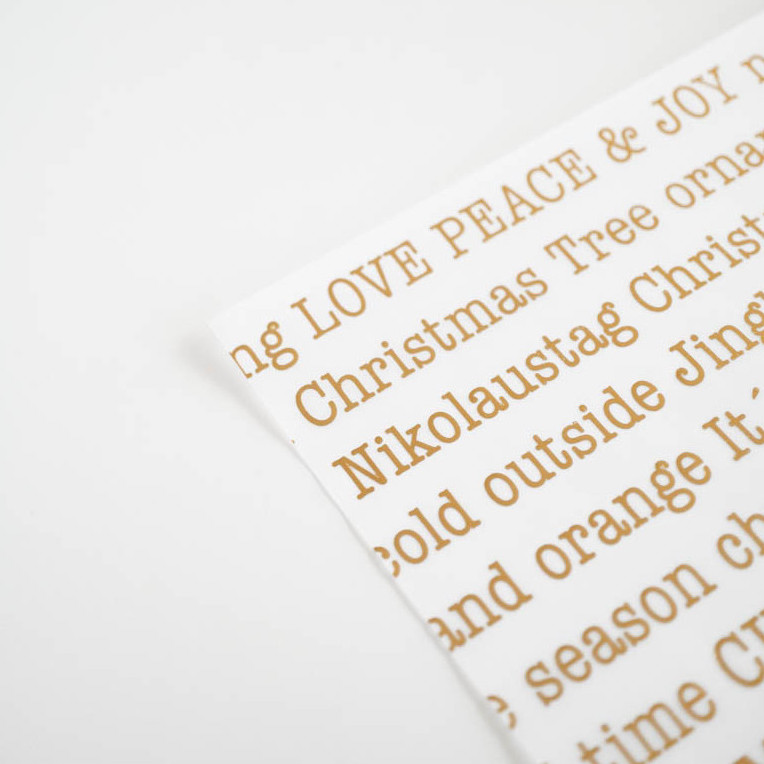 ng LOVE PEACE & JOY
Christmas Tree orna
Nikolaustag Christ
cold outside Jing
and orange It´
e season ch
time